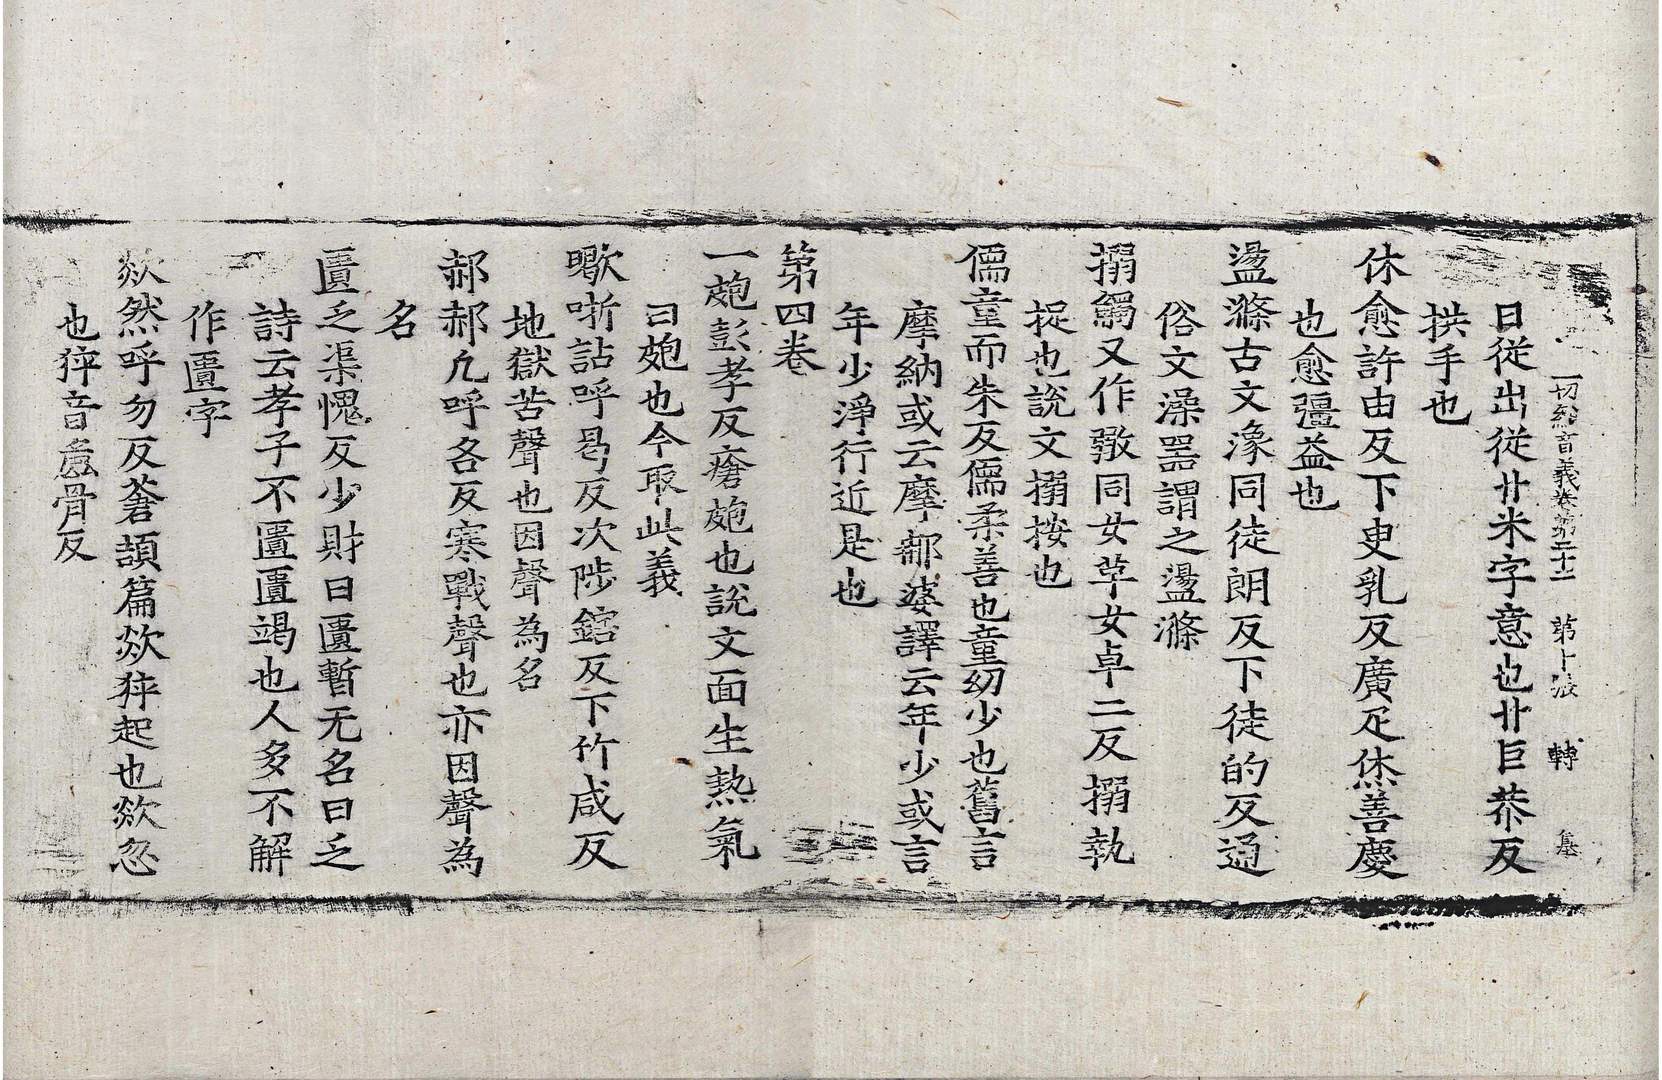 一切經音義卷第二十一 第十張 轉 集
日從出從廾米字意也廾巨恭反
拱手也
休愈許由反下臾乳反廣疋烋善慶
也愈彊益也
盪滌古文潒同徒朗反下徒的反通
俗文澡器謂之盪滌
搦觸又作敪同女草女卓二反搦執
捉也說文搦按也
儒童而朱反儒柔善也童幼少也舊言
摩納或云摩那婆譯云年少或言
年少淨行近是也
第四卷
一皰彭孝反瘡皰也說文面生熱氣
曰皰也今取此義
㘈哳詀呼曷反次陟鎋反下竹咸反
地獄苦聲也因聲為名
郝郝凢呼各反寒戰聲也亦因聲為
名
匱乏渠愧反少財曰匱暫无名曰乏
詩云孝子不匱匱竭也人多不解
作匱字
欻然呼勿反蒼頡篇欻猝起也欻忽
也猝音麁骨反